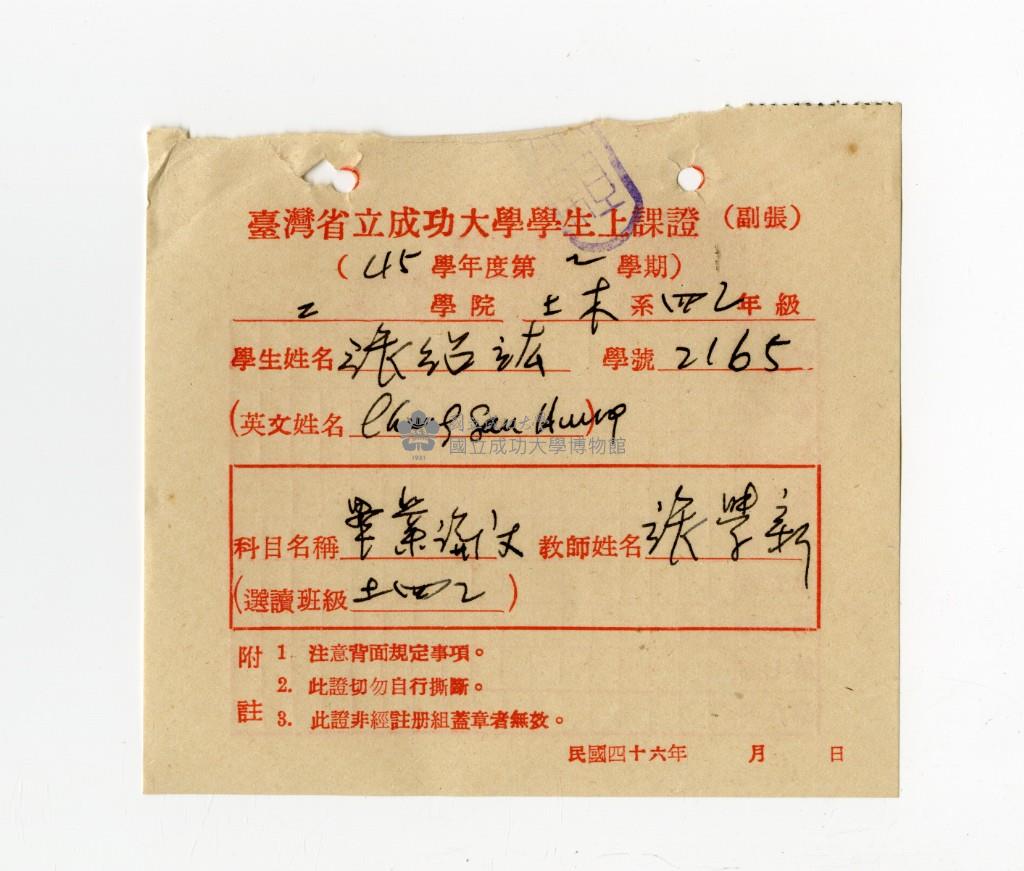 臺灣省立成功大學學生上課證 (副張)
( 45 學年度第 2 學期)
工 學院 土木 系 四乙 年級
學生姓名 張紹 學號 2165
(英文姓名 )
國立成功大學博物館
1931
科目名稱 畢業論文 教師姓名 張學新
(選讀班級 土四乙 )
附註
1. 注意背面規定事項。
2. 此證切勿自行撕斷。
3. 此證非經註册組蓋章者無效。
民國四十六年 月 日